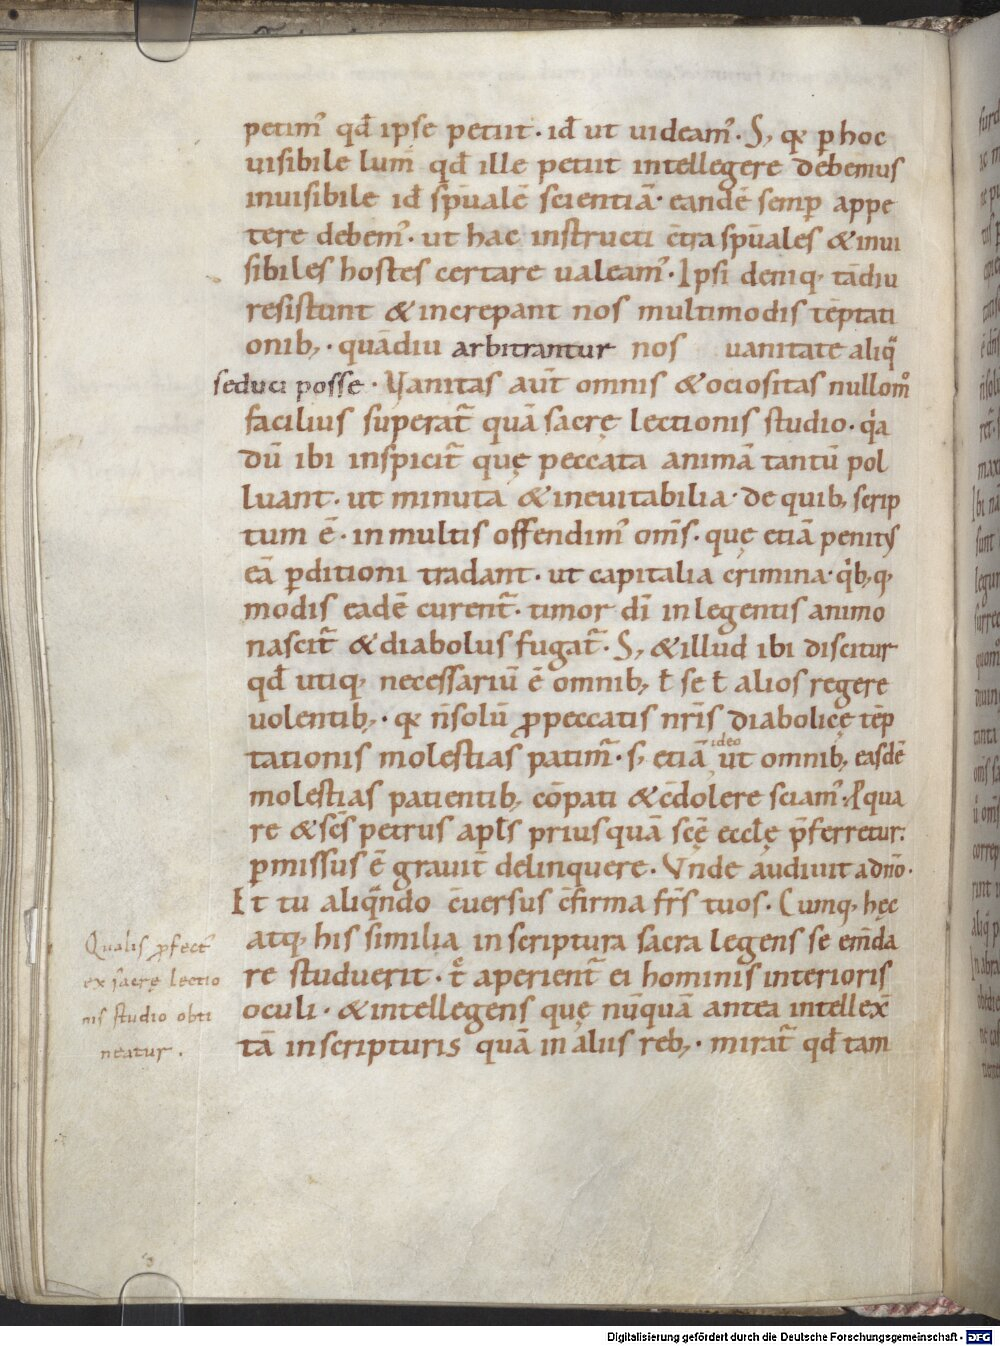 petim᷒ qđ ipse petiit · id ut uideam᷒ · S; qꝛ ꝑ hoc
uisibile lum̄ qđ ille petiit intellegere debemus
inuisibile id sp̄ualē scientiā · eandē semꝑ appe
tere debem᷒ · ut hac instructi c̄tra sp̄uales & inui
sibiles hostes certare ualeam᷒ · Ipsi deniq; tādiu
resistunt & increpant nos multimodis tēptati
onib; · quādiu arbitrantur nos uanitate aliq̄
seduci posse · Vanitas aut̄ omnis & ociositas nullom᷒
facilius superat̄ quā sacrę lectionis studio · qͥa
dū ibi inspicit̄ quę peccata animā tantū pol
luant · ut minuta & ineuitabilia · de quib; scrip
tum ē · in multis offendim᷒ om̄s · quę etiā penit᷒
eā ꝑditioni tradant · ut capitalia crimina · qͥb; q;
modis eadē curent̄ · timor dī in legentis animo
nascit̄ & diabolus fugat̄ · S; & illud ibi discitur
qđ utiq; necessariū ē omnib; ł se ł alios regere
uolentib; · qꝛ n̄ solū ꝓ peccatis nr̄is diabolicę tēp
tationis molestias patim̄ · s; etiā ideo ut omnib; easdē
molestias patientib; cōpati & c̄dolere sciam᷒ · Pqua
re & sc̄s petrus apl̄s priusquā sc̄ę eccl̄ę p̄ferretur ·
ꝑmissus ē grauit̄ delinquere · Vnde audiuit a dn̄o ·
Et tu aliq̄ndo c̄uersus c̄firma fr̄s tuos · Cumq; hęc
atq; his similia in scriptura sacra legens se em̄da
re studuerit · t̄c aperient̄ ei hominis interioris
oculi · & intellegens quę nūquā antea intellex̄
tā in scripturis quā in aliis reb; · mirat̄ qđ tam
Qualis ꝓfect᷒
ex sacrę lectio
nis studio obti
neatur .
Digitalisierung gefördert durch die Deutsche Forschungsgemeinschaft - DFG